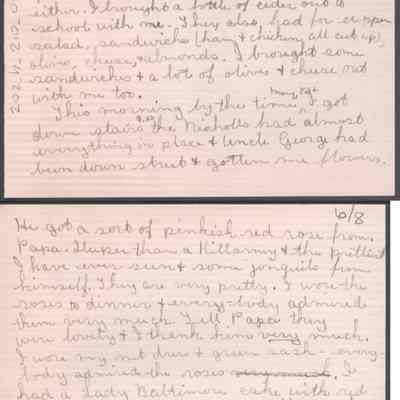 either. I brought a bottle of cider out to
school with me. They also had for supper
salad, sandwiches (ham & chicken all cut up),
olives, cheese, & almonds. I brought some
sandwiches & a lot of olives & cheese out
with me too.
This morning by the time I got
down stairs the Nicholls had almost
everything in place & Uncle George had
been down street & gotten me flowers.
6/8
He got a sort of pinkish red rose from
Papa deeper than a Killarney & the prettiest
I have ever seen & some jonquils from
himself. They are very pretty. I wore the
roses to dinner & every=body admired
them very much. Tell Papa they
were lovely & I thank him very much.
I wore my net dress & green sash - every-
body admired the roses very much. I
had a Lady Baltimore cake with red